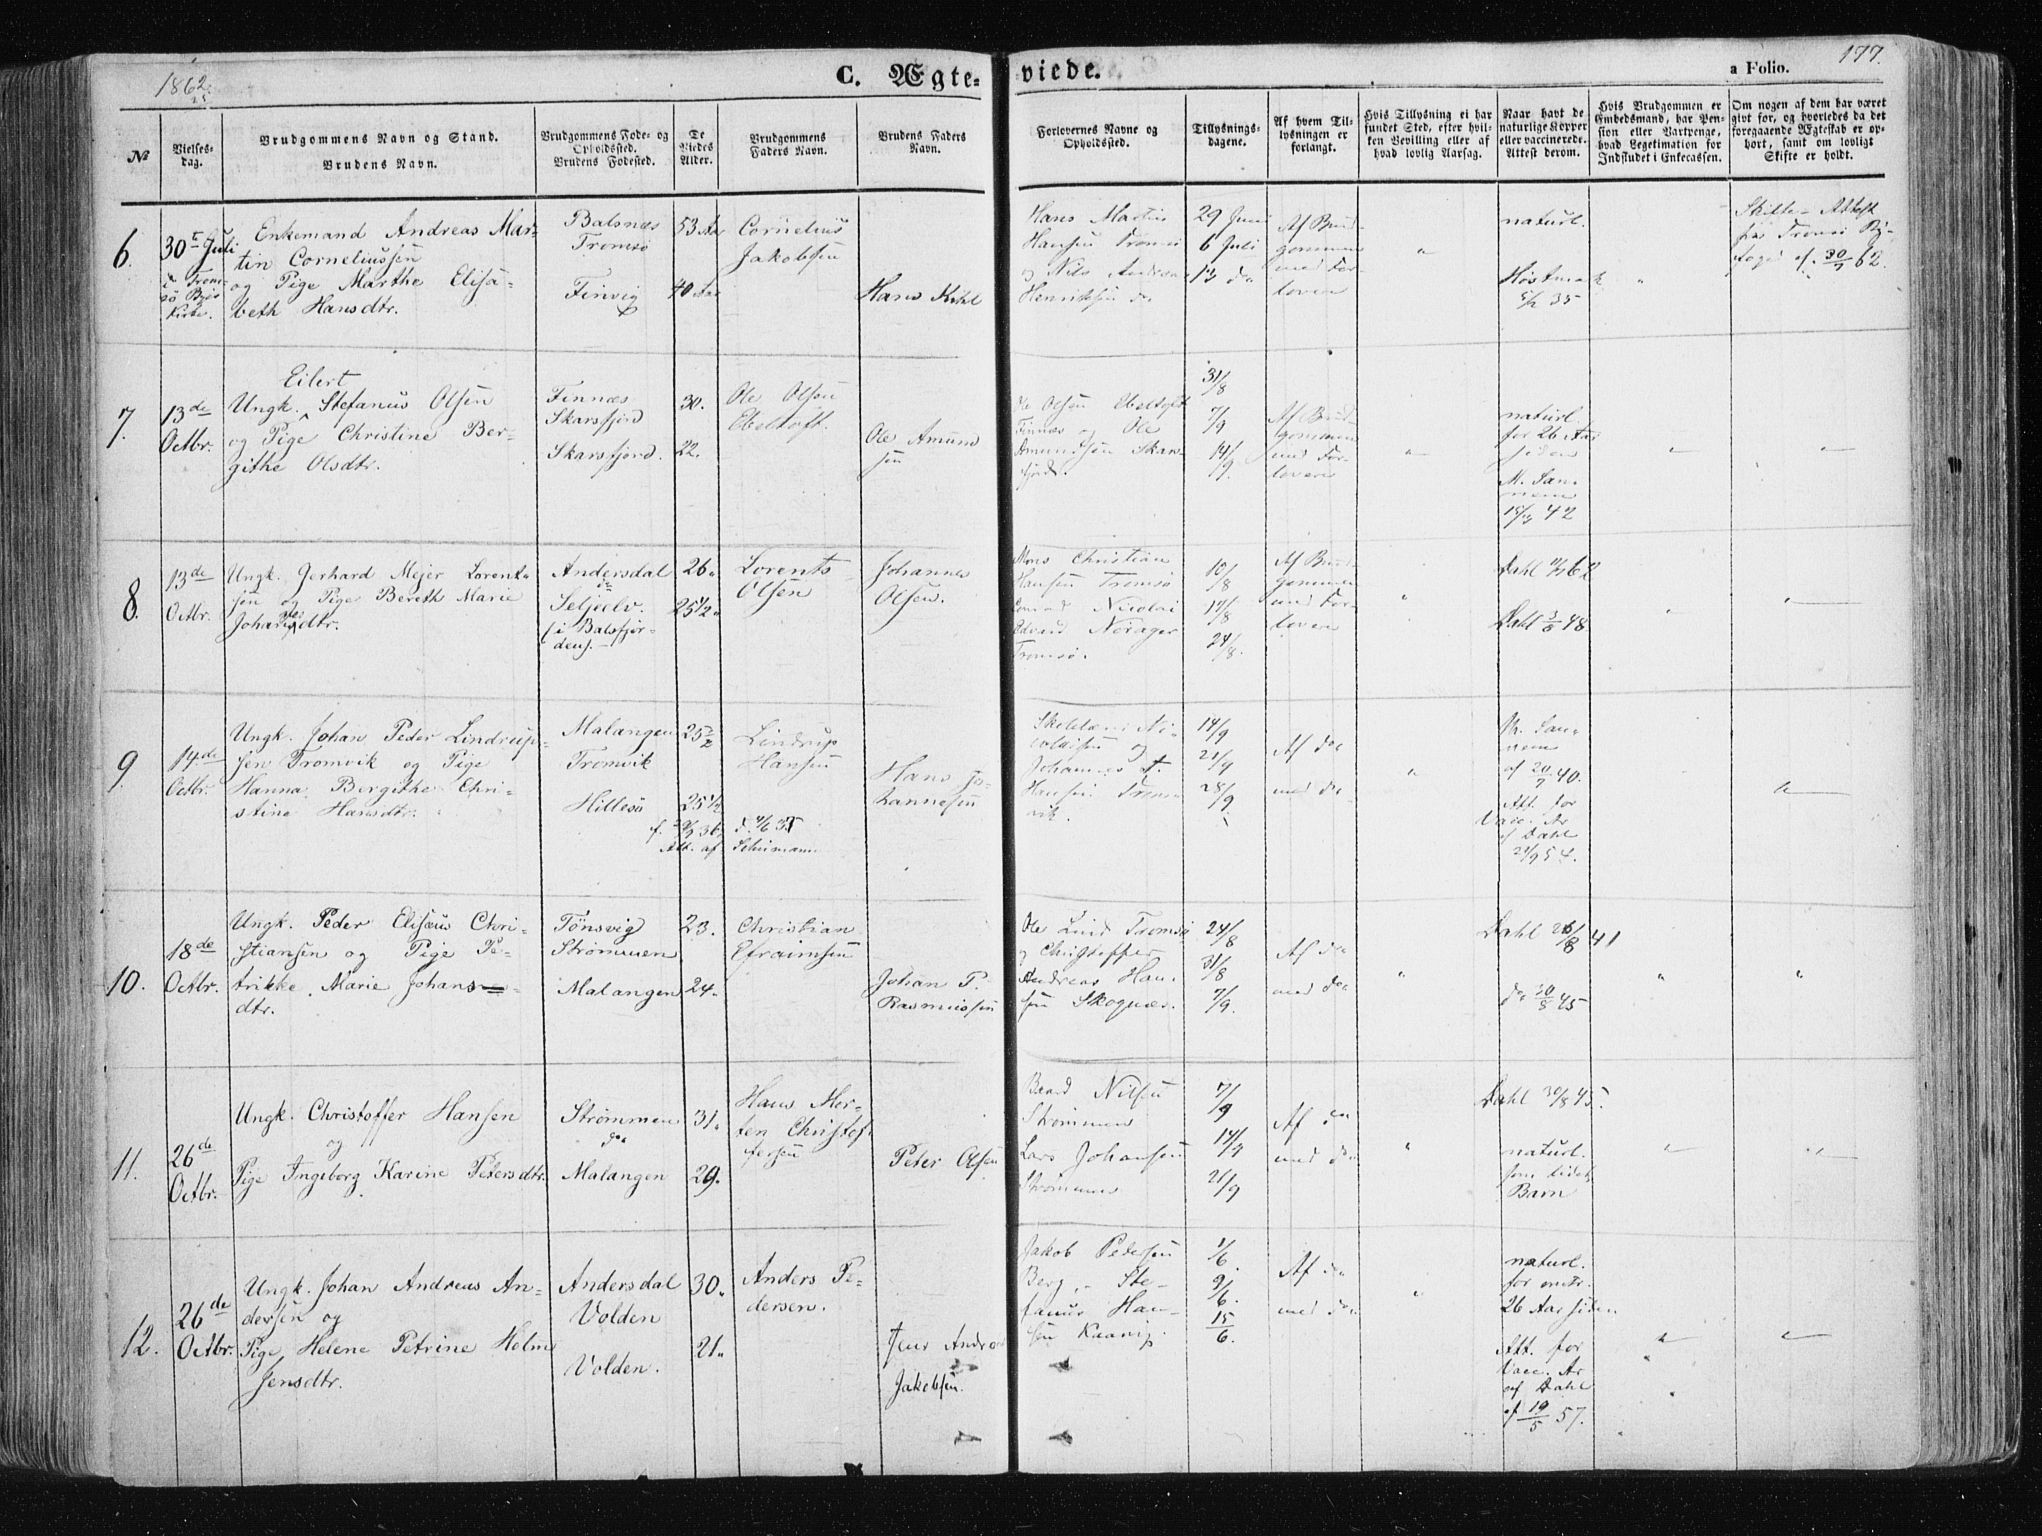 1862.
C. Ægte-
viede.
a Folio.
177.
№
Vielses-
dag.
Brudgommens Navn og Stand.
Brudens Navn.
Brudgommens Føde- og
Opholdssted.
Brudens Fødested.
De
Viedes
Alder.
Brudgommens
Faders Navn.
Brudens Faders
Navn.
Forlovernes Navne og
Opholdssted.
Tillysnings-
dagene.
Af hvem Til-
lysningen er
forlangt.
Hvis Tillysning ei har
fundet Sted, efter hvil-
ken Bevilling eller af
hvad lovlig Aarsag.
Naar havt de
naturlige Kopper
eller vaccinerede.
Attest derom.
Hvis Brudgommen er
Embedsmand, har Pen-
sion eller Vartpenge,
hvad Legetimation for
Indskudet i Enkecassen.
Om nogen af dem har været
gift før, og hvorledes da det
foregaaende Ægteskab er op-
hørt, samt om lovligt
Skifte er holdt.
6.
30te Juli
i Trom-
sø Bys
Kirke.
Enkemand Andreas Mar-
tin Corneliussen
og Pige Marthe Elisa-
beth Hansdtr.
Balsnæs
Tromsø
Finvig
53 Aar
40 Aar
Cornelius
Jakobsen
Hans Kihl
Hans Martin
Hansen Tromsø
og Nils Andreas
Henriksen do
29 Juni
6 Juli
13 do
Af Brud-
gommen
med For-
lovere
"
naturl.
Høstmark
5/12 35
"
Skifte-Attest
fra Tromsø By-
foged af 30/7 62.
7.
13de
Octbr.
Eilert
Ungk. Stefanus Olsen
og Pige Christine Ber-
githe Olsdtr.
Finnæs
Skarsfjord
Skarsfjord.
30.
22.
Ole Olsen
Ebeltoft.
Ole Amund
sen
Ole Olsen Ebeltoft
Finnæs og Ole
Amundsen Skars-
fjord.
31/8
7/9
14/9.
Af Brud-
gommen
med For-
lovere
"
naturl.
for 26 Aar
siden
M. San-
nem
15/10 42
"
"
8.
13de
Octbr.
Ungk. Gerhard Mejer Lorent-
sen og Pige Bereth Marie
Johannesdtr.
Andersdal
Seljeelv.
(i Balsfjor-
den).
26.
25 1/2.
Lorents
Olsen
Johannes
Olsen.
Mons Christian
Hansen Tromsø
Conrad Nicolai
Edvard Norager
Tromsø.
10/8
17/8
24/8.
Af Brud-
gommen
med For-
lovere
"
Dahl 11/7 62
Dahl 3/6 48
"
"
9
14de
Octbr.
Ungk. Johan Peder Lindrup-
sen Tromvik og Pige
Hanna Bergithe Chri-
stine Hansdtr.
Malangen
Tromvik
Hillesø
25 1/2
25 1/2
Lindrup
Hansen
Schumann
Hans Jo-
hannesen
Johannes A.
Hansen Trom-
vik.
14/9
21/9
28/9.
Af do
med do
"
M. San-
nem
af 20/7 40.
Att. for
Vacc. Ar
af Dahl
21/9 54.
"
10.
18de
Octbr.
Ungk. Peder Elisæus Chri-
stiansen og Pige Pe-
trikke Marie Johans-
dtr.
Tønsvig
Strømmen
Malangen
23.
24.
Christian
Efraimsen
Johan P.
Rasmussen
Ole Lind Tromsø
og Christoffer
Andreas Han-
sen Skognæs.
24/8
31/8
7/9.
Af do
med do
"
Dahl 26/8 41
do 30/8 45
"
"
11.
26de
Octbr.
Ungk. Christoffer Hansen
og
Pige Ingeborg Karine Petersdtr.
Strømmen
do
Malangen
31.
29.
Hans Mor-
ten Christof-
fersen
Peter Olsen
Nilsen
Strømmen
Lars Johansen
Strømmen
7/9
14/9
21/9
Af do
med do
"
Dahl 30/8 45.
naturl.
som lidet
Barn
"
"
12.
26de
Octbr.
Ungk. Johan Andreas An-
dersen og
Pige Helene Petrine Holm
Jensdtr.
Andersdal
Volden
Volden.
30.
21.
Anders Pe-
dersen.
Jens Andreas
Jakobsen.
Jakob Pedersen
Berg, Ste-
fanus Han-
sen Kaavig.
1/6.
9/6.
15/6.
Af do
med do
"
naturl.
for omtr.
26 Aar siden
Att. for
Vacc. Ar
af Dahl
af 19/5 57.
"
"